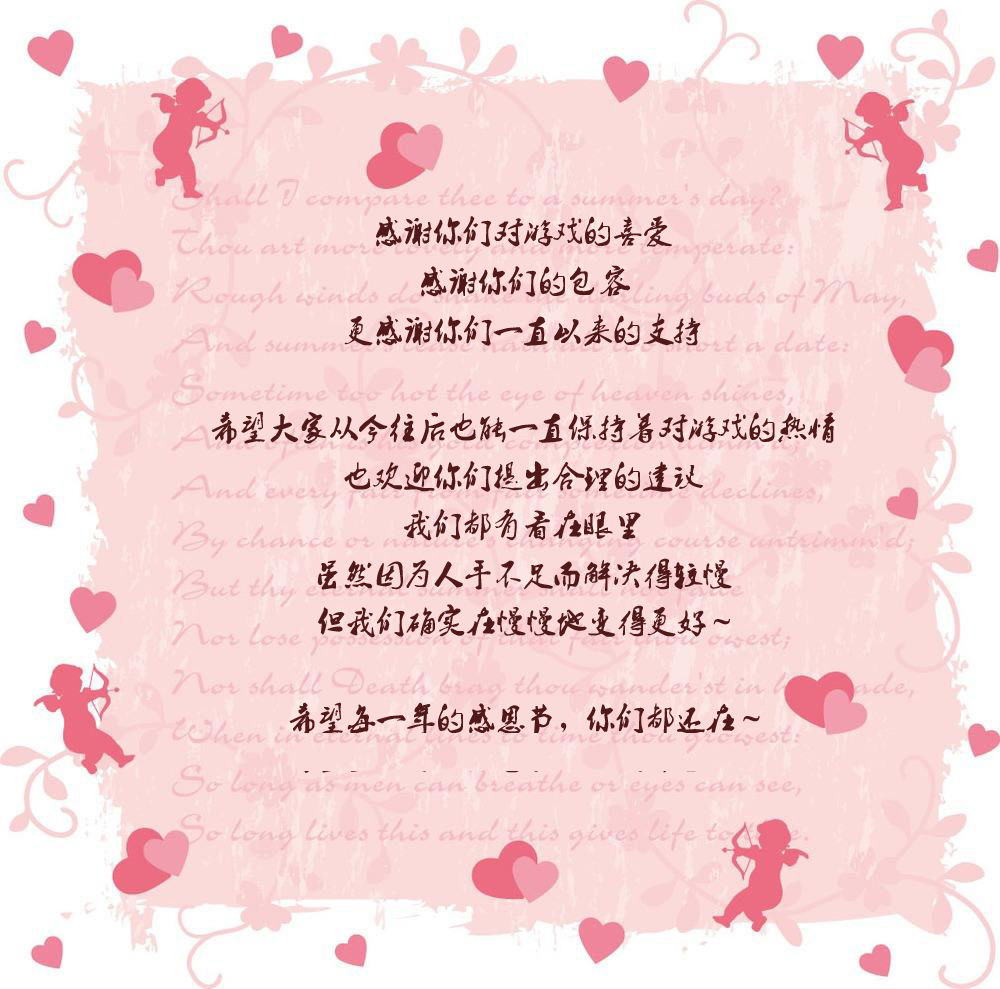 Shall I compare thee to a summer's day?
感谢你们对游戏的喜爱
Thou art more lovely and more temperate:
感谢你们的包容
Rough winds do buds of May,
更感谢你们一直以来的支持
And summer's a date:
Sometime too hot the eye of heaven shines,
希望大家从今往后也能一直保持着对游戏的热情
也欢迎你们提出合理的建议
And every fair from declines,
我们都有看在眼里
By chance or nature's changing course untrimm'd;
虽然因为人手不足而解决得较慢
But thy eternal summer shall not fade
但我们确实在慢慢地变得更好~
Nor lose possession of thou owest;
Nor shall Death brag thou wander'st in his shade,
希望每一年的感恩节，你们都还在~
When in eternal lines to time thou growest:
So long as men can breathe or eyes can see,
So long lives this and this gives life to thee.